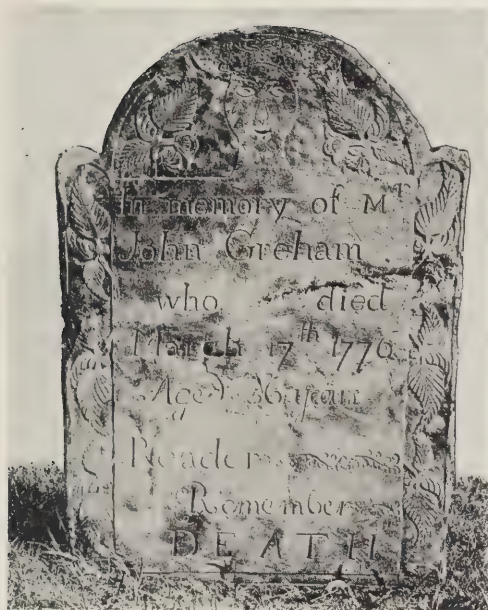 In memory of Mr
John Greham
who died
March 17th 1776
Aged 36 years
Reader
Remember
DEATH